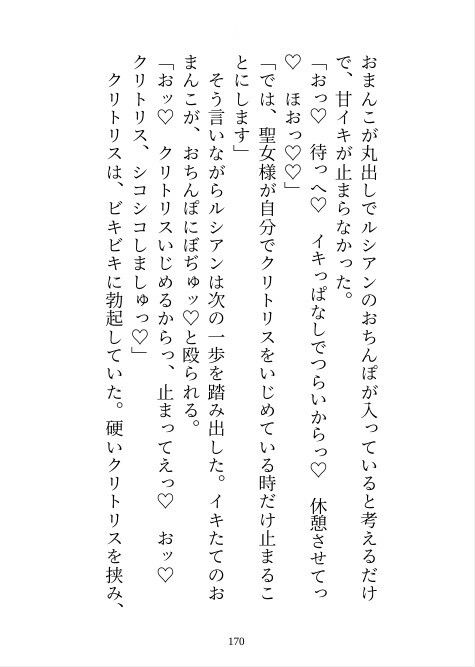 おまんこが丸出しでルシアンのおちんぽが入っていると考えるだけ
で、甘イキが止まらなかった。
「おっ♡　待っへ♡　イキっぱなしでつらいからっ♡　休憩させてっ
♡　ほおっ♡♡」
「では、聖女様が自分でクリトリスをいじめている時だけ止まるこ
とにします」
　そう言いながらルシアンは次の一歩を踏み出した。イキたてのお
まんこが、おちんぽにぼぢゅッ♡と殴られる。
「おッ♡　クリトリスいじめるからっ、止まってえっ♡　おッ♡
クリトリス、シコシコしましゅっ♡」
　クリトリスは、ビキビキに勃起していた。硬いクリトリスを挟み、
170